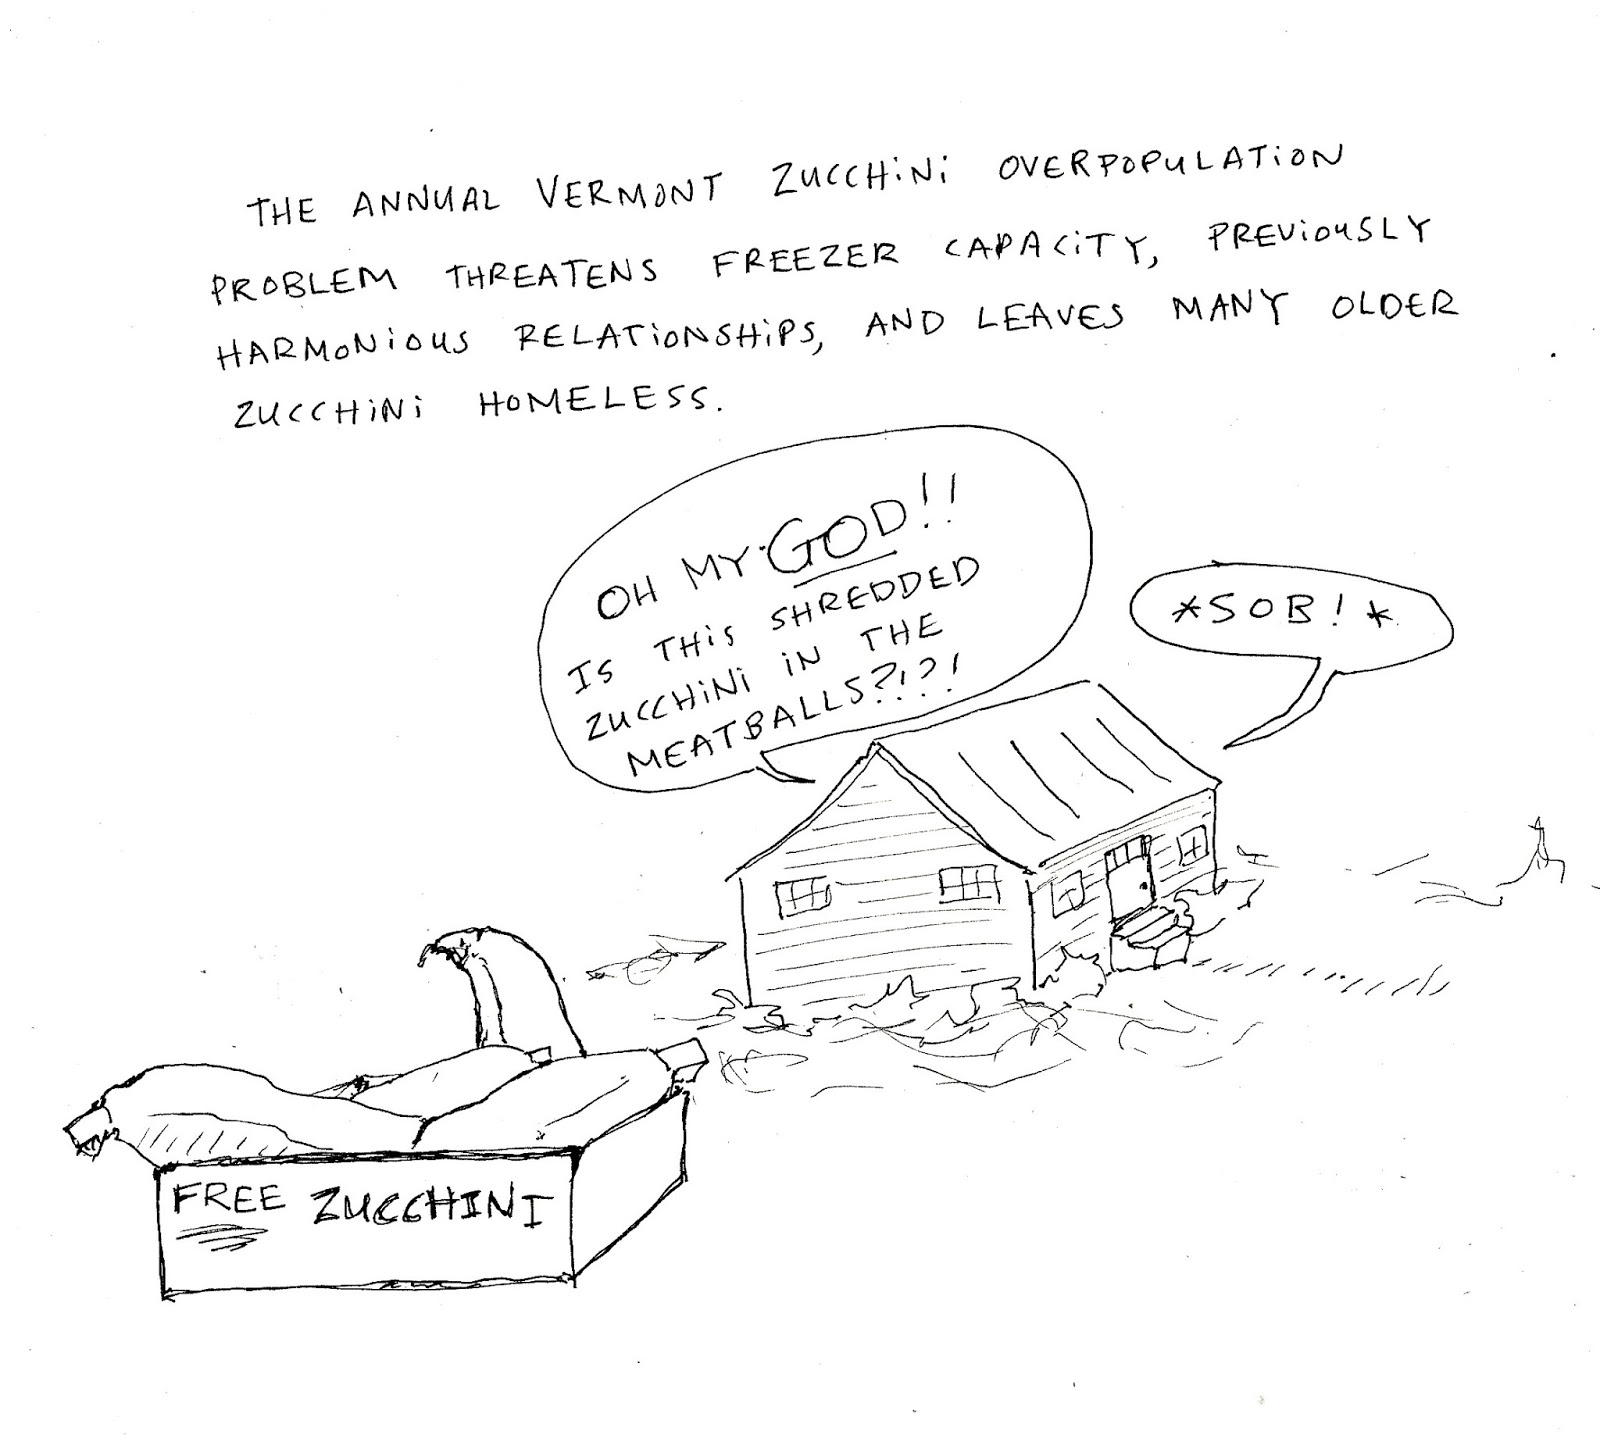 THE ANNUAL VERMONT ZUCCHINI OVERPOPULATION
PROBLEM THREATENS FREEZER CAPACITY, PREVIOUSLY
HARMONIOUS RELATIONSHIPS, AND LEAVES MANY OLDER
ZUCCHINI HOMELESS.
OH MY GOD!!
IS THIS SHREDDED
ZUCCHINI IN THE
MEATBALLS?!?!
*SOB!*
FREE ZUCCHINI